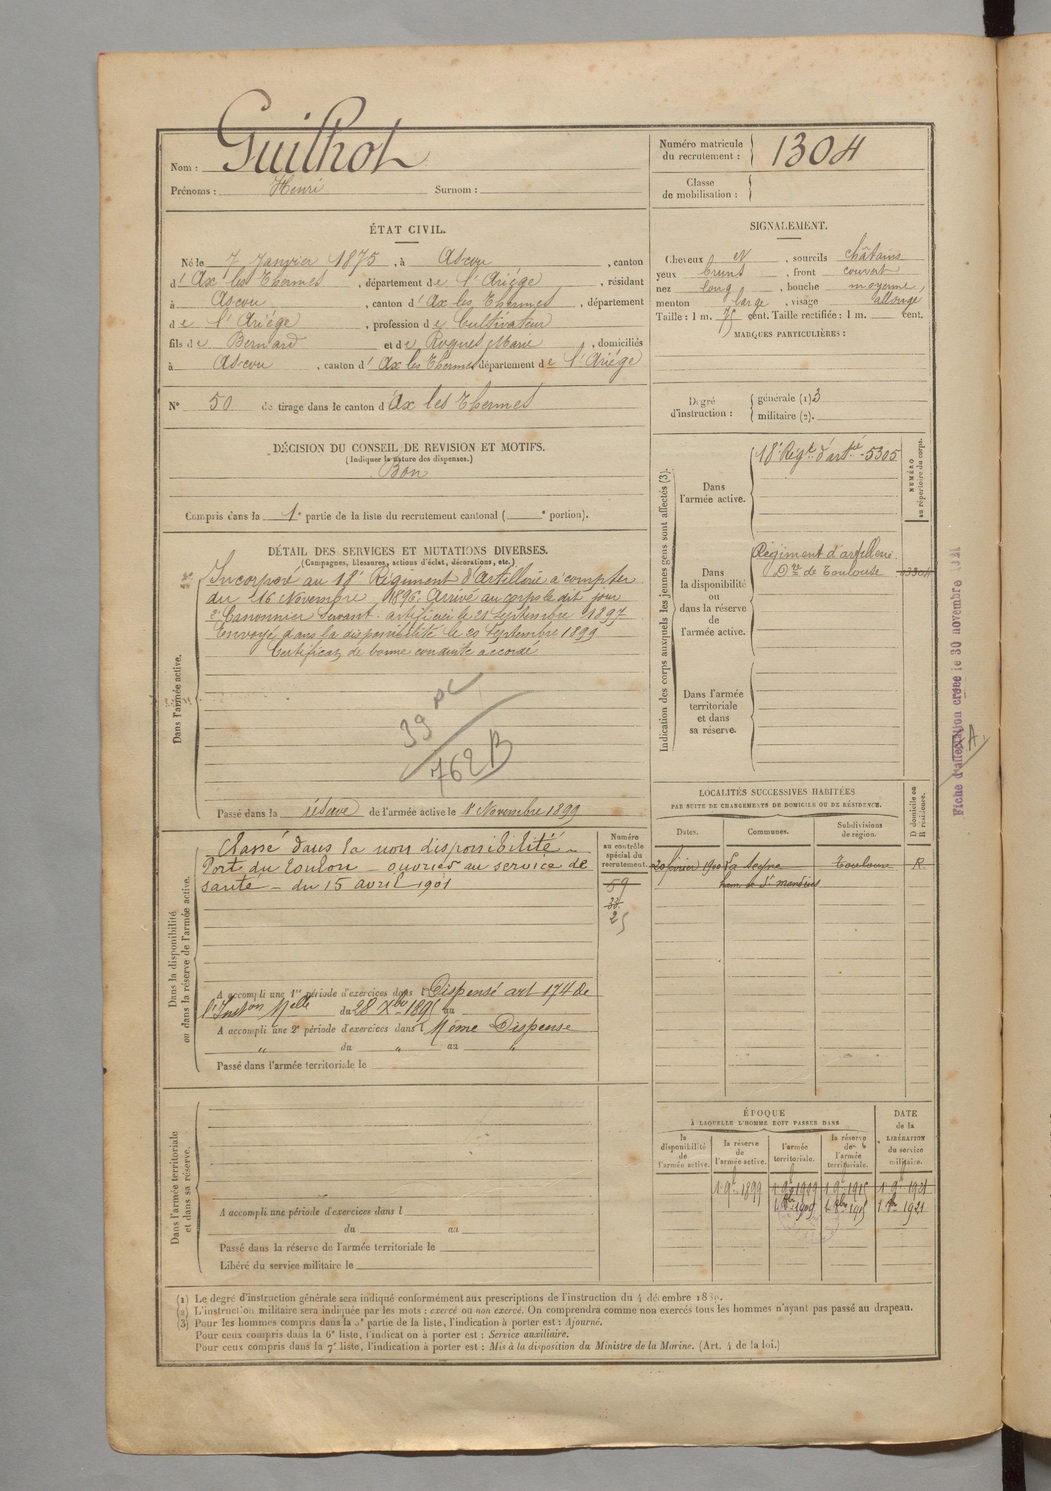 Nom : Guilhot
Prénoms : Henri Surnom :
Numéro matricule
du recrutement : 1304
Classe
de mobilisation :
ÉTAT CIVIL.
Né le 7 Janvier 1875, à Ascou, canton
d'Ax les Thermes, département de l'Ariège, résidant
à Ascou, canton d'Ax les Thermes, département
de l'Ariège, profession de Cultivateur
fils de Bernard et de Rogues Marie, domiciliés
à Ascou, canton d'Ax les Thermes département de l'Ariège
N° 50 de tirage dans le canton d'Ax les Thermes
SIGNALEMENT.
Cheveux N, sourcils châtains
yeux bruns, front couvert
nez long, bouche moyenne,
menton large, visage allongé
Taille : 1 m. 75 cent. Taille rectifiée : 1 m. cent.
MARQUES PARTICULIÈRES :
Degré
d'instruction :
générale (1) 3
militaire (2).
DÉCISION DU CONSEIL DE REVISION ET MOTIFS.
(Indiquer la nature des dispenses.)
Bon
Compris dans la 1e partie de la liste du recrutement cantonal ( e portion).
DÉTAIL DES SERVICES ET MUTATIONS DIVERSES.
(Campagnes, blessures, actions d'éclat, décorations, etc.)
Dans l'armée active.
Incorporé au 18e Régiment d'Artillerie à compter
du 16 Novembre 1896. Arrivé au corps le dit jour
2e Canonnier servant. artificier le 21 Septembre 1897
Envoyé dans la disponibilité le 20 Septembre 1899
Certificat de bonne conduite accordé
39
762 B
Passé dans la réserve de l'armée active le 1r Novembre 1899
Indication des corps auxquels les jeunes gens sont affectés (3).
NUMÉRO
au répertoire du corps.
Dans
l'armée active.
18e Régt d'artie - 5305
Dans
la disponibilité
ou
dans la réserve
de
l'armée active.
Régiment d'artillerie
Don de Toulouse
Dans l'armée
territoriale
et dans
sa réserve.
Fiche d'affectation créée le 30 novembre
A.
Dans la disponibilité
ou dans la réserve de l'armée active.
Classé dans la non disponibilité
Port du Toulon - ouvrier au service de
santé - du 15 avril 1901
Numéro
au contrôle
spécial du
recrutement.
59
33.
25
A accompli une 1re période d'exercices dans l Dispensé art 174 de
l'Inston Melle du 28 Xbre 1895 au
A accompli une 2e période d'exercices dans l Même Dispense
" du " au "
Passé dans l'armée territoriale le
LOCALITÉS SUCCESSIVES HABITÉES
PAR SUITE DE CHANGEMENTS DE DOMICILE OU DE RÉSIDENCE.
Dates. Communes. Subdivisions
de région.
D domicile ou
R résidence.
20 février 1900 La Seyne Toulon R
Dans l'armée territoriale
et dans sa réserve.
A accompli une période d'exercices dans l
du au
Passé dans la réserve de l'armée territoriale le
Libéré du service militaire le
ÉPOQUE
À LAQUELLE L'HOMME DOIT PASSER DANS
la
disponibilité
de
l'armée active.
la réserve
de
l'armée active.
l'armée
territoriale.
la réserve
de
l'armée
territoriale.
DATE
de la
LIBÉRATION
du service
militaire.
1 9bre 1899 1 9bre 1909 1 9bre 1915 1 9bre 1921
1921
(1) Le degré d'instruction générale sera indiqué conformément aux prescriptions de l'instruction du 4 décembre 1889.
(2) L'instruction militaire sera indiquée par les mots : exercé ou non exercé. On comprendra comme non exercés tous les hommes n'ayant pas passé au drapeau.
(3) Pour les hommes compris dans la 2e partie de la liste, l'indication à porter est : Ajourné.
Pour ceux compris dans la 6e liste, l'indication à porter est : Service auxiliaire.
Pour ceux compris dans la 7e liste, l'indication à porter est : Mis à la disposition du Ministre de la Marine. (Art. 4 de la loi.)